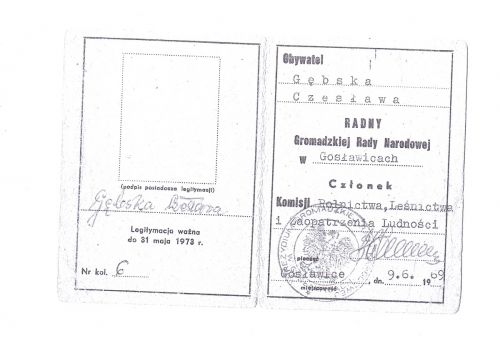 (podpis posiadacza legitymacji)
Gębska
Legitymacja ważna
do 31 maja 1973 r.
Nr kol. 6
Obywatel
Gębska
Czesława
RADNY
Gromadzkiej Rady Narodowej
w Gosławicach
Członek
Komisji Rolnictwa, Leśnictwa
i Zaopatrzenia Ludności
PREZYDIUM GROMADZKIEJ
pieczęć
Gosławice, dn. 9.6. 1969
miejscowość